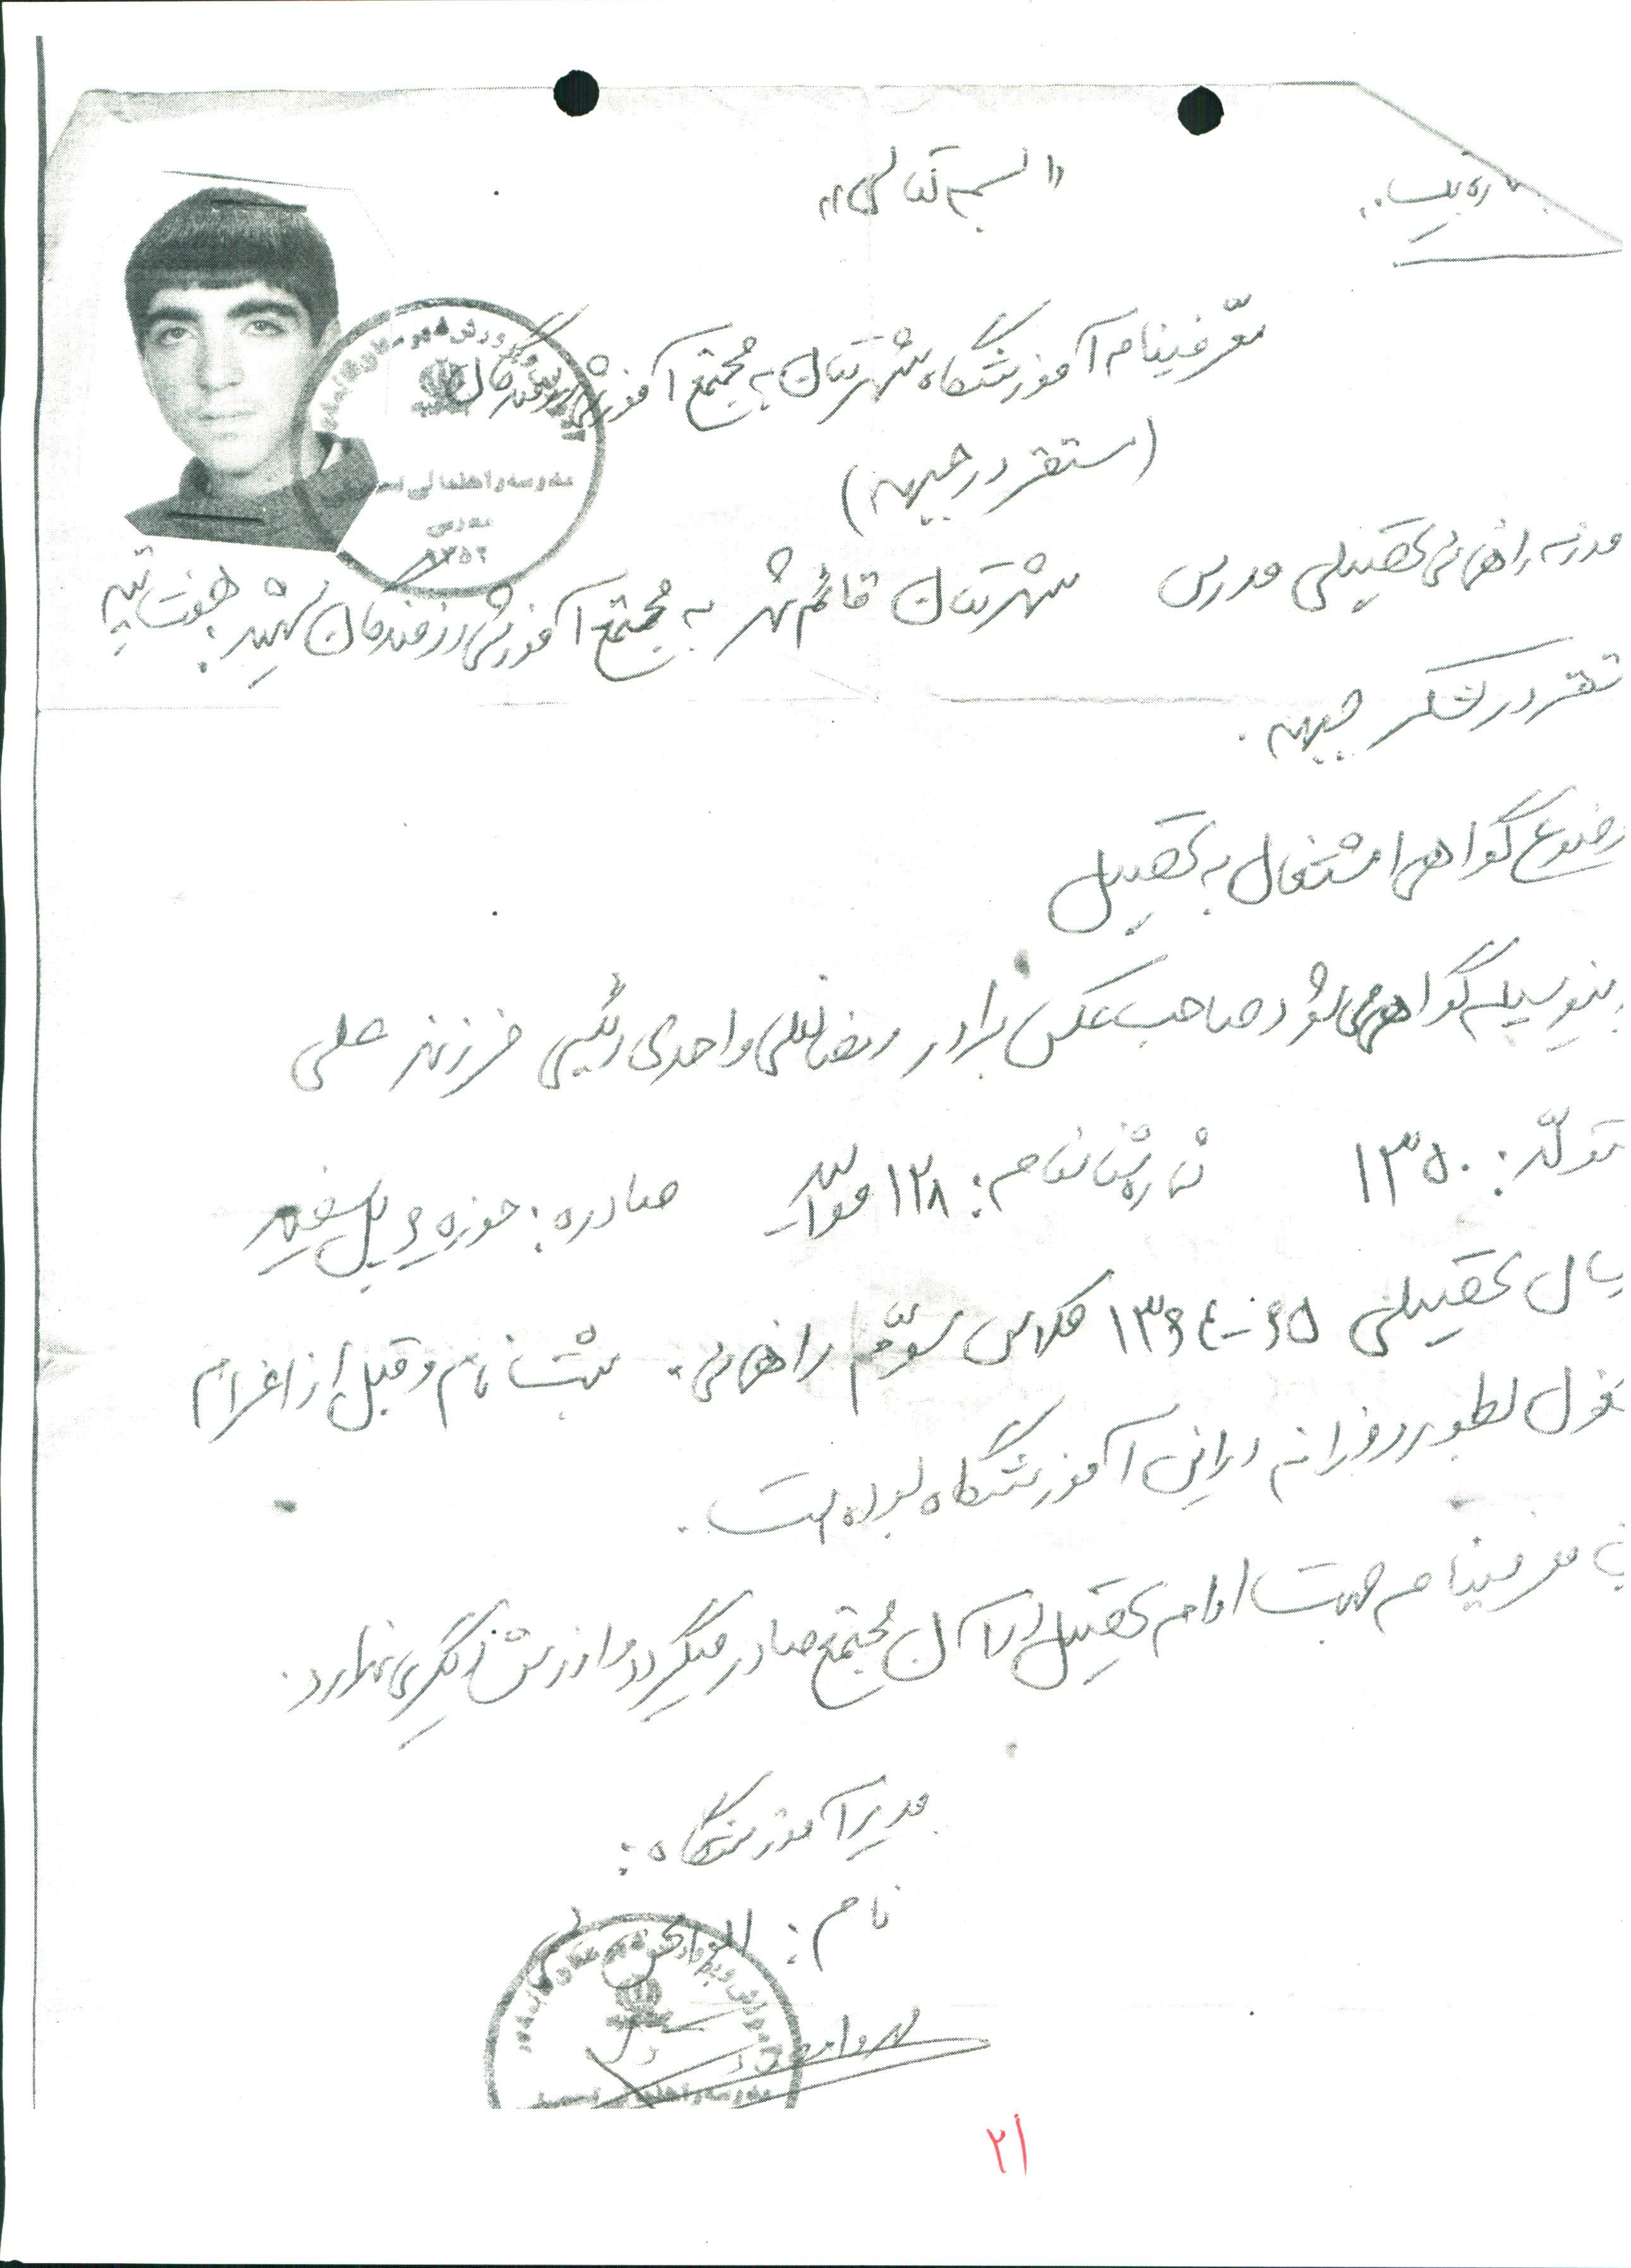 بسمه تعالی
معرّفینامه آموزشگاه شهرستان به مجتمع آموزشی رزمندگان
(مستقر در جبهه)
مدرسه راهنمائی تحصیلی مدرس شهرستان قائم شهر به مجتمع آموزشی رزمندگان شهید هفت تپه
مستقر در لشکر جبهه.
موضوع گواهی اشتغال به تحصیل
بدینوسیله گواهی می شود صاحب عکس برادر رمضانعلی واحدی رئیسی فرزند علی
متولّد: ۱۳۵۰ شماره شناسنامه: ۱۲۸ صادره: حوزه ۶ پل سفید
سال تحصیلی ۶۵-۱۳۶۴ کلاس سوّم راهنمائی ثبت نام و قبل از اعزام
مشغول بطور روزانه در این آموزشگاه بوده است.
این معرفینامه جهت ادامه تحصیل در آن مجتمع صادر میگردد و ارزش دیگری ندارد.
مدیر آموزشگاه:
نام:
مدرسه راهنمائی
مدرس
۲۱